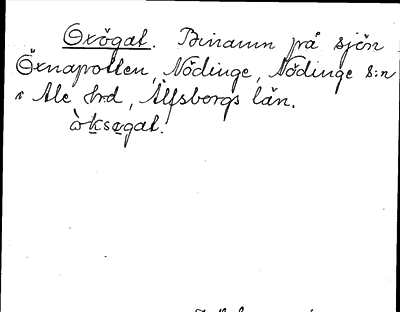 Oxögat. Binamn på sjön
Öxnapotten, Nödinge, Nödinge s:n
i Ale hrd, Älfsborgs län.
òksøgat.